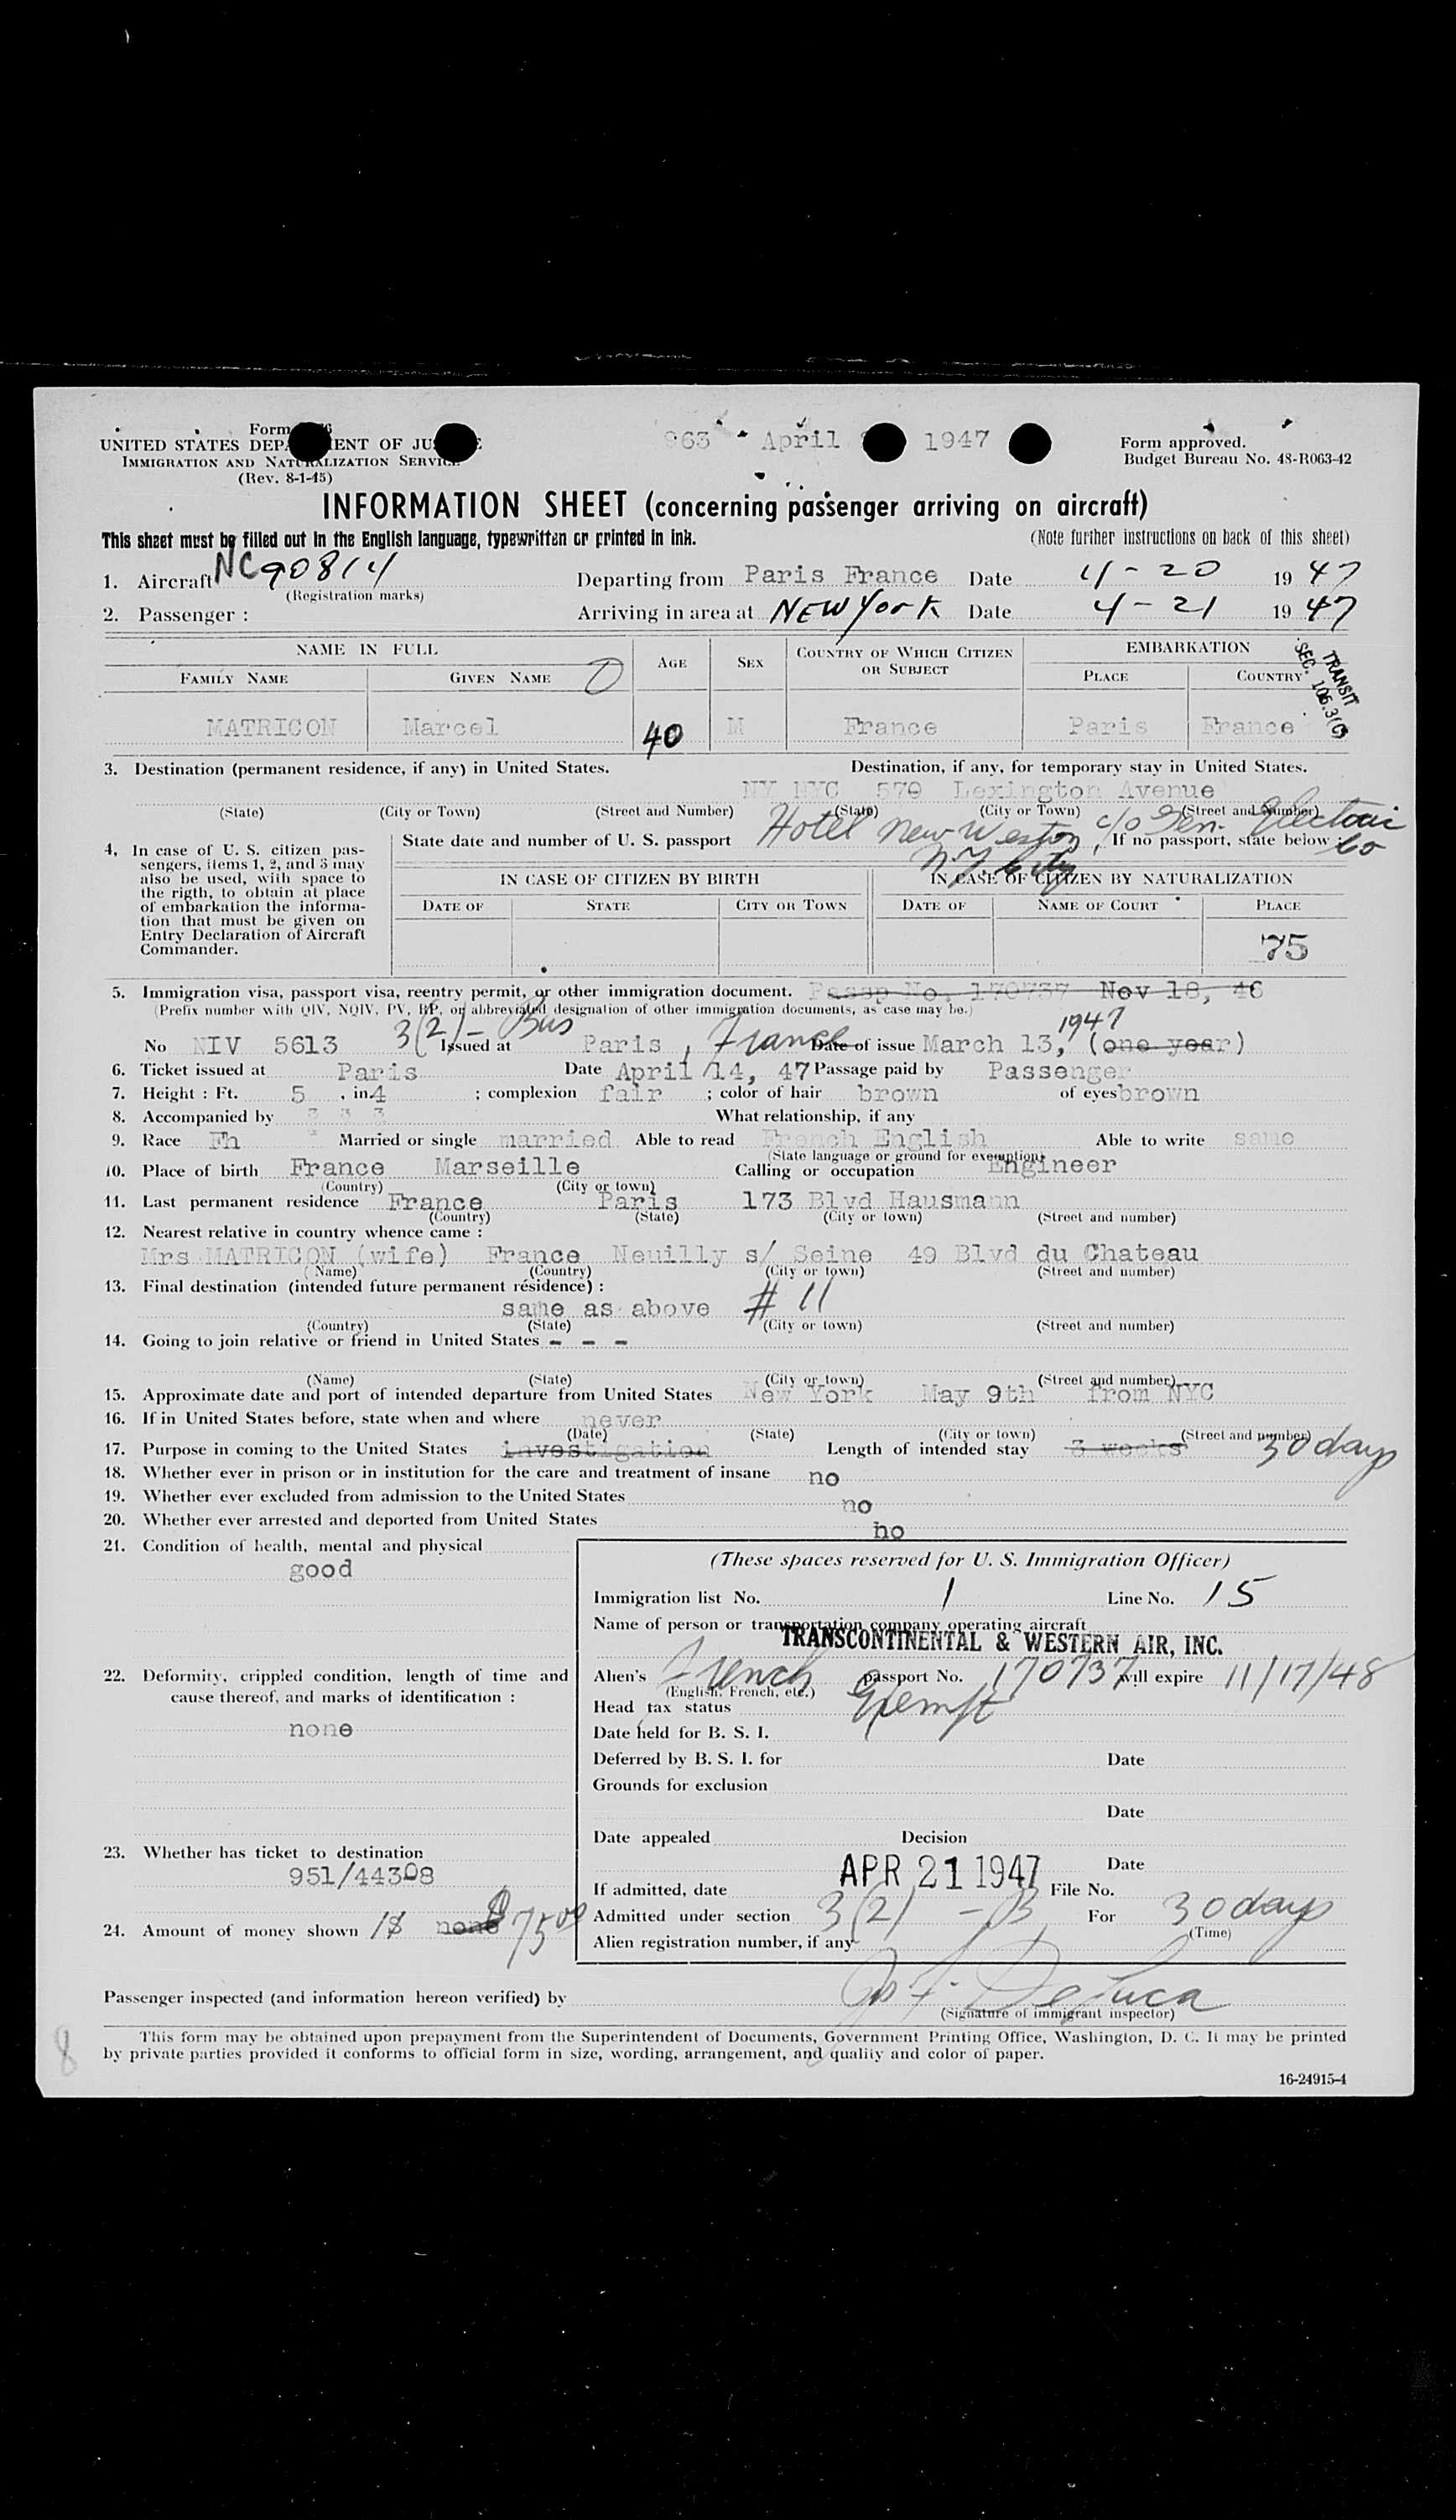 Form
UNITED STATES DEPARTMENT OF JUSTICE
IMMIGRATION AND NATURALIZATION SERVICE
(Rev. 8-1-45)
963 - April 1947
Form approved.
Budget Bureau No. 48-R063-42
INFORMATION SHEET (concerning passenger arriving on aircraft)
This sheet must be filled out in the English language, typewritten or printed in ink.
(Note further instructions on back of this sheet)
1. Aircraft NC90814 Departing from Paris France Date 4-20 1947
(Registration marks)
2. Passenger : Arriving in area at NEW York Date 4-21 1947
NAME IN FULL AGE SEX COUNTRY OF WHICH CITIZEN OR SUBJECT EMBARKATION
FAMILY NAME GIVEN NAME PLACE COUNTRY
TRANSIT
SEC. 106.3(C)
MATRICON Marcel 40 M France Paris France
3. Destination (permanent residence, if any) in United States. Destination, if any, for temporary stay in United States.
NY NYC 570 Lexington Avenue
(State) (City or Town) (Street and Number) (State) (City or Town) (Street and Number)
Hotel New Weston, c/o Gen. Electric Co
N.Y. City
4. In case of U. S. citizen pas-
sengers, items 1, 2, and 3 may
also be used, with space to
the rigth, to obtain at place
of embarkation the informa-
tion that must be given on
Entry Declaration of Aircraft
Commander.
State date and number of U. S. passport If no passport, state below :
IN CASE OF CITIZEN BY BIRTH IN CASE OF CITIZEN BY NATURALIZATION
DATE OF STATE CITY OR TOWN DATE OF NAME OF COURT PLACE
75
5. Immigration visa, passport visa, reentry permit, or other immigration document. Passp No. 170737 Nov 18, 46
(Prefix number with QIV, NQIV, PV, RP, or abbreviated designation of other immigration documents, as case may be.)
3(2)- Bus 1947
No NIV 5613 Issued at Paris, France Date of issue March 13, (one year)
6. Ticket issued at Paris Date April 14, 47 Passage paid by Passenger
7. Height : Ft. 5 , in. 4 ; complexion fair ; color of hair brown of eyes brown
8. Accompanied by What relationship, if any
9. Race Fh Married or single married Able to read French English Able to write same
(State language or ground for exemption)
10. Place of birth France Marseille Calling or occupation Engineer
(Country) (City or town)
11. Last permanent residence France Paris 173 Blvd Hausmann
(Country) (State) (City or town) (Street and number)
12. Nearest relative in country whence came :
Mrs MATRICON (wife) France Neuilly s/ Seine 49 Blvd du Chateau
(Name) (Country) (City or town) (Street and number)
13. Final destination (intended future permanent résidence) :
same as above # 11
(Country) (State) (City or town) (Street and number)
14. Going to join relative or friend in United States - - -
(Name) (State) (City or town) (Street and number)
15. Approximate date and port of intended departure from United States New York May 9th from NYC
16. If in United States before, state when and where never
(Date) (State) (City or town) (Street and number)
17. Purpose in coming to the United States investigation Length of intended stay 3 weeks 30 days
18. Whether ever in prison or in institution for the care and treatment of insane no
19. Whether ever excluded from admission to the United States no
20. Whether ever arrested and deported from United States no
21. Condition of health, mental and physical
good
22. Deformity, crippled condition, length of time and
cause thereof, and marks of identification :
none
23. Whether has ticket to destination
951/44308
24. Amount of money shown 1$ none $75.00
(These spaces reserved for U. S. Immigration Officer)
Immigration list No. 1 Line No. 15
Name of person or transportation company operating aircraft
TRANSCONTINENTAL & WESTERN AIR, INC.
Alien's French passport No. 170737 will expire 11/17/48
(English, French, etc.)
Head tax status Exempt
Date held for B. S. I.
Deferred by B. S. I. for Date
Grounds for exclusion
Date
Date appealed Decision
Date
If admitted, date APR 21 1947 File No.
Admitted under section 3(2) - B For 30 days
(Time)
Alien registration number, if any
Passenger inspected (and information hereon verified) by Jos F. DeLuca
(Signature of immigrant inspector)
This form may be obtained upon prepayment from the Superintendent of Documents, Government Printing Office, Washington, D. C. It may be printed
by private parties provided it conforms to official form in size, wording, arrangement, and quality and color of paper.
8
16-24915-4